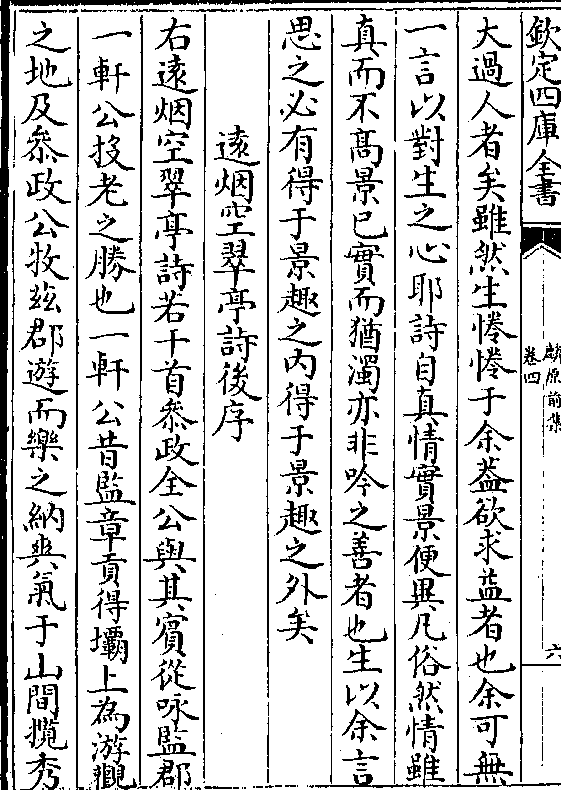 欽定四庫全書
麟原前集
卷四
六
大過人者矣雖然生惓惓于余葢欲求益者也余可無
一言以對生之心耶詩自真情實景便異凡俗然情雖
真而不髙景已實而猶濁亦非吟之善者也生以余言
思之必有得于景趣之内得于景趣之外矣
逺烟空翠亭詩後序
右逺烟空翠亭詩若干首叅政全公與其賓從咏監郡
一軒公投老之勝也一軒公昔監章貢得壩上為游觀
之地及叅政公牧兹郡遊而樂之納爽氣于山間攬秀